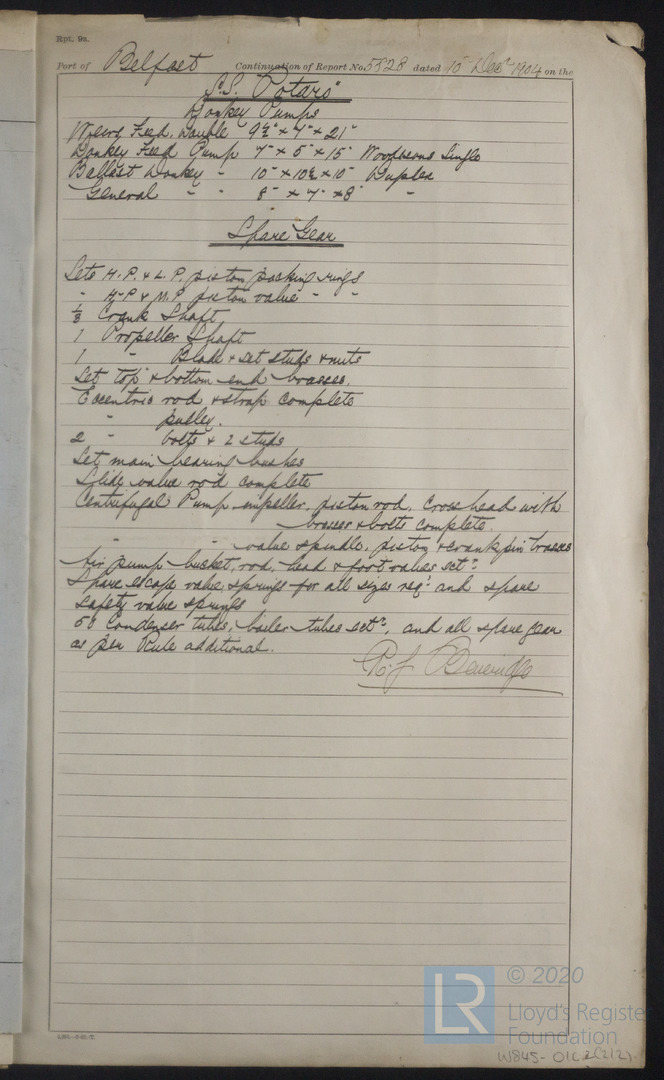 Rpt. 9a.
Port of Belfast Continuation of Report No. 5828 dated 15 Decr 1904 on the
S.S. "Potaro"
Donkey Pumps
Weirs Feed. Double 9½" × 7" × 21"
Donkey Feed Pump 7" × 5" × 15" Woodesons Single
Ballast Donkey - 10" × 10½ × 10" Duplex
General - - 8" × 7" × 8" -
Spare Gear
Sets H.P. & L.P. piston packing rings
" H.P. & M.P. piston valve " "
⅓ Crank Shaft
1 Propeller Shaft
1 " Blade & set studs & nuts
Set top & bottom end brasses.
Eccentric rod & strap complete
" pulley.
2 " bolts & 2 studs
Set main bearing bushes
Slide valve rod complete
Centrifugal Pump impeller, piston rod, crosshead with
brasses & bolts complete
" " value spindle, piston & crank pin brasses
Air pump bucket, rod, head & foot valves etc.
Spare escape valve springs for all sizes reqd and spare
safety valve springs
50 Condenser tubes, boiler tubes etc, and all spare gear
as per Rule additional.
R. J. Beveridge
LR
© 2020
Lloyd's Register
Foundation
W845-0162(2/2)